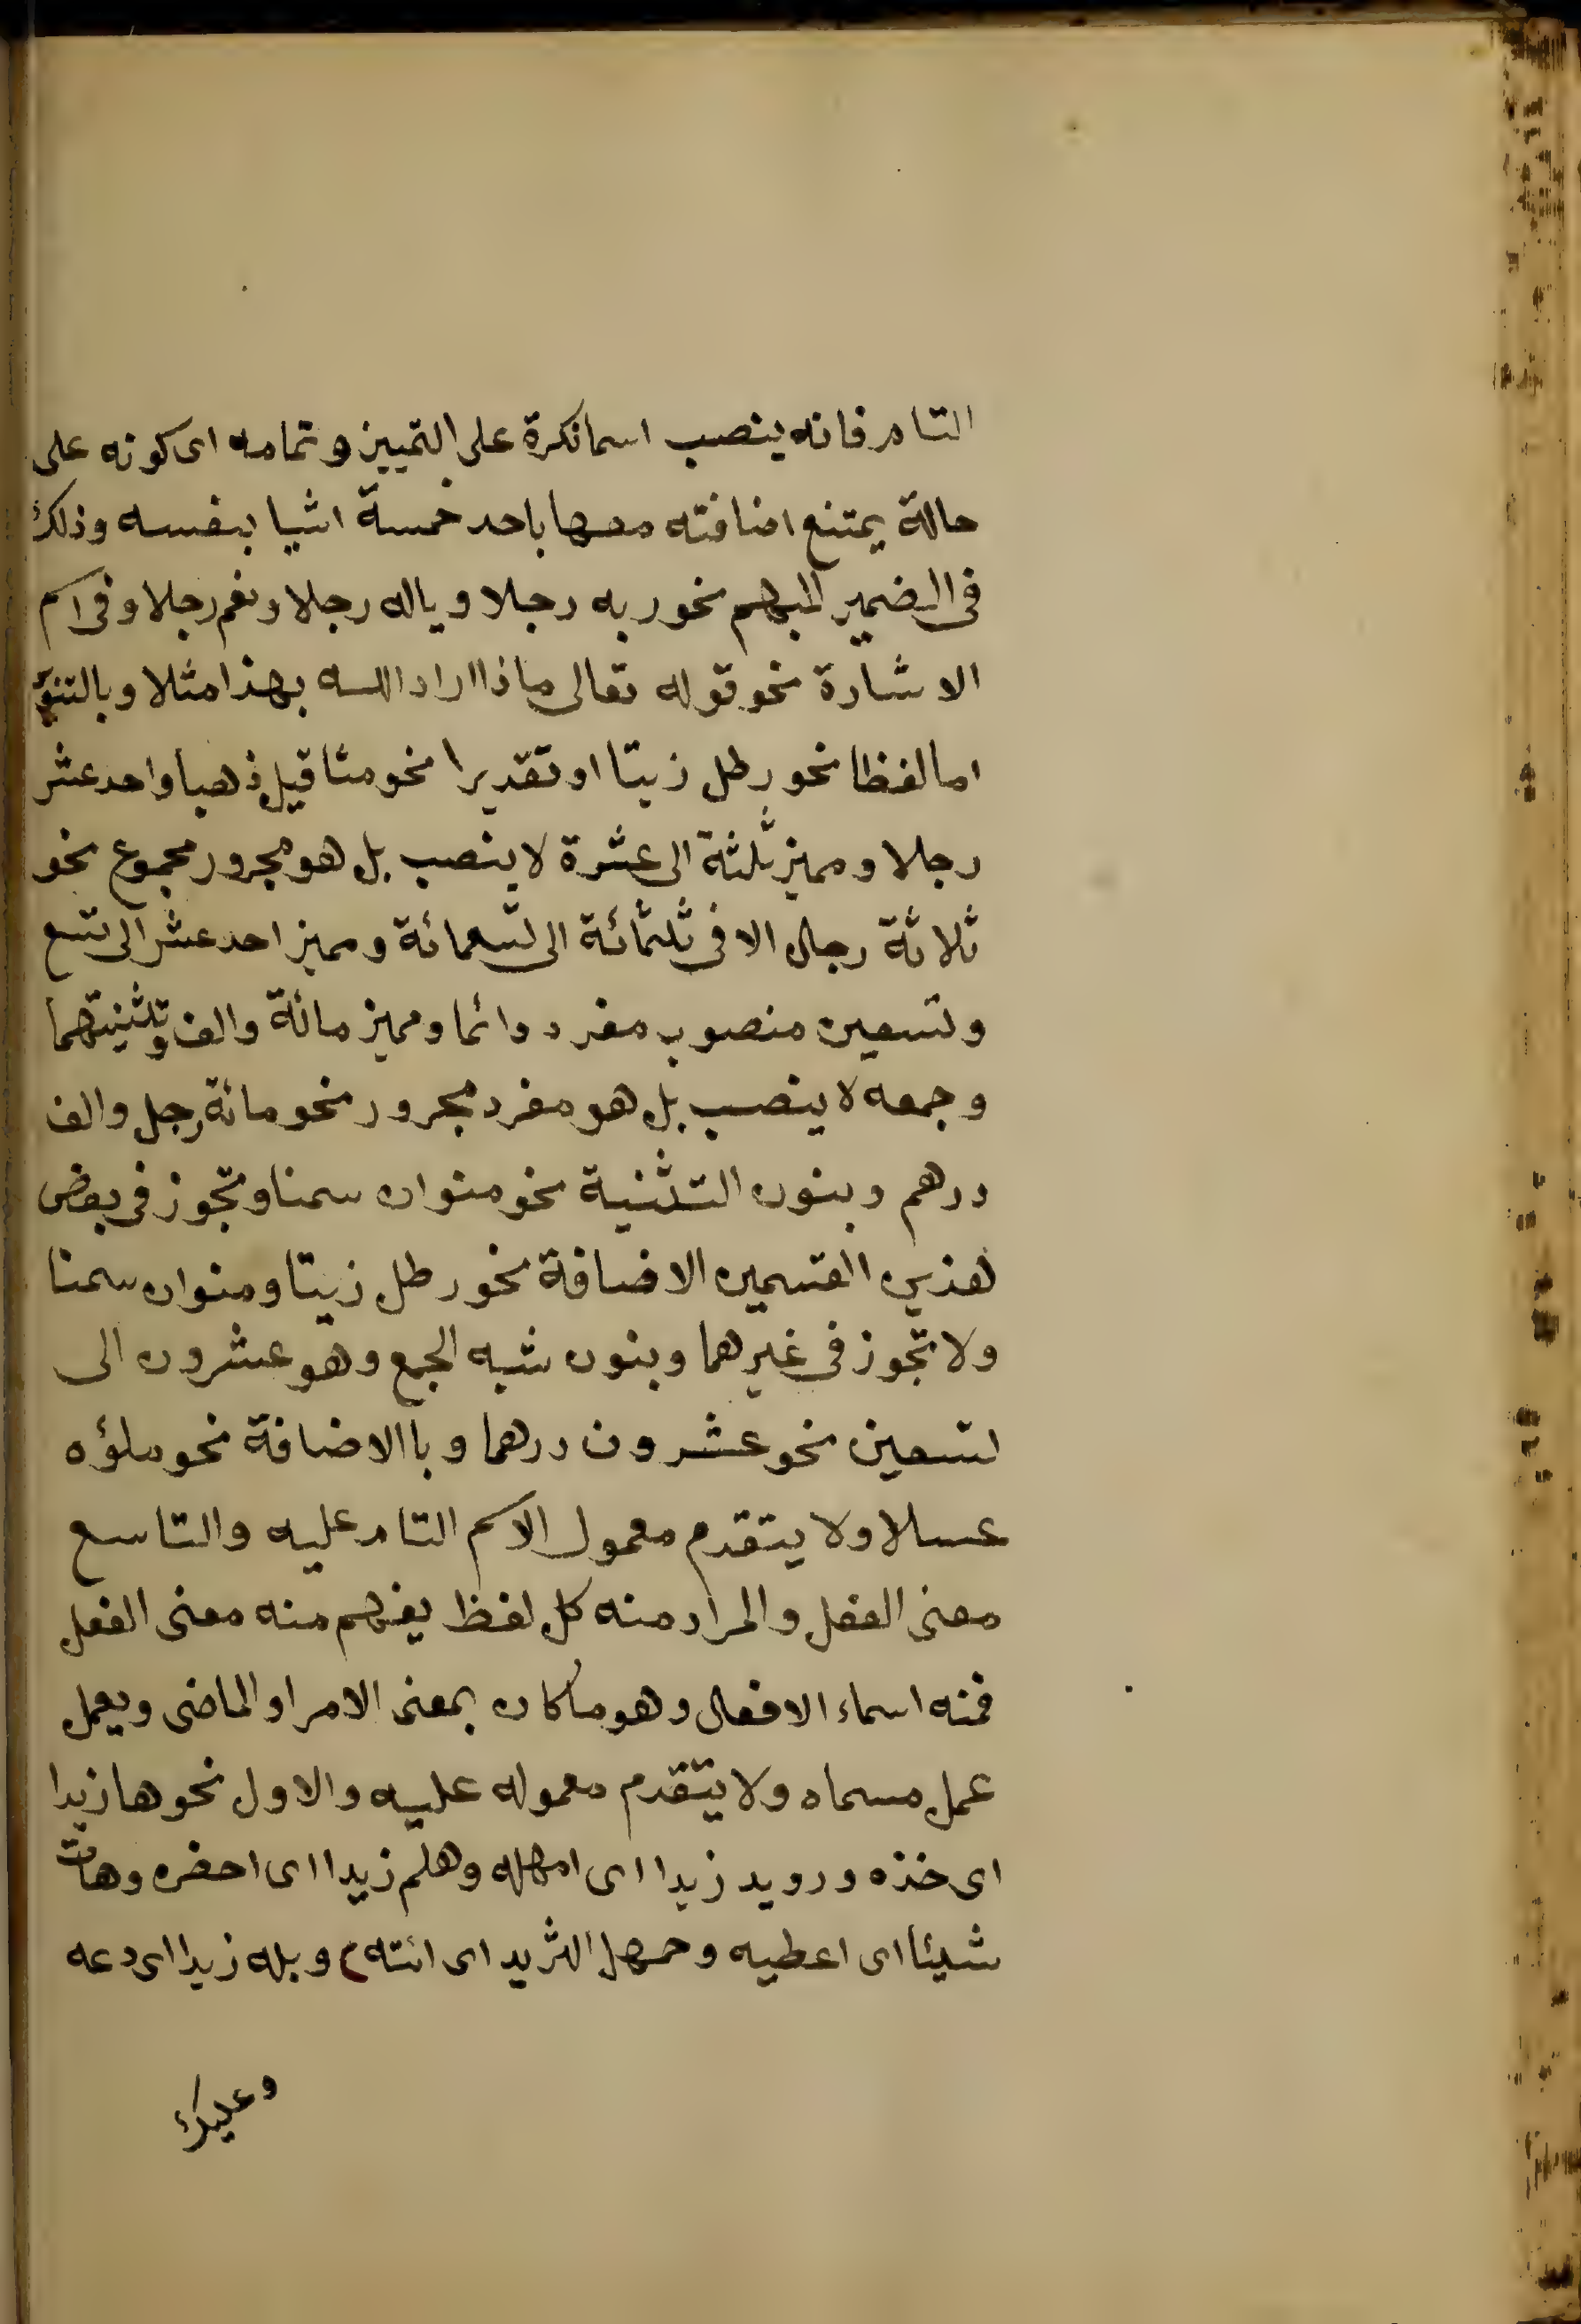 التام فانه ينصب اسما نكرة على التمييز وتمامه اى كونه على
حالة يمتنع اضافته معها باحد خمسة اشيا بنفسه وذلك
فى الضمير المبهم نحو ربه رجلا وياله رجلا ونعم رجلا وفى اسم
الاشارة نحو قوله تعالى ماذا اراد الله بهذا مثلا وبالتنو
اما لفظا نحو رطل زيتا او تقديرا نحو مثاقيل ذهبا واحد عشر
رجلا ومميز ثلثة الى عشرة لا ينصب بل هو مجرور مجموع نحو
ثلاثة رجال الا فى ثلثمائة الى تسعمائة ومميز احد عشر الى تسع
وتسعين منصوب مفرد دائما ومميز مائة والف وتثنيتهما
وجمعه لا ينصب بل هو مفرد مجرور نحو مائة رجل والف
درهم وبنون التثنية نحو منوان سمنا وتجوز فى بعض
هذين القسمين الاضافة نحو رطل زيتا ومنوان سمنا
ولا تجوز فى غيرهما وبنون شبه الجمع وهو عشرون الى
تسعين نحو عشرون درهما وباالاضافة نحو ملؤه
عسلا ولا يتقدم معمول الاسم التام عليه والتاسع
معنى الفعل والمراد منه كل لفظ يفهم منه معنى الفعل
فمنه اسماء الافعال وهو ما كان بمعنى الامر او الماضى ويعمل
عمل مسماه ولا يتقدم معموله عليه والاول نحو ها زيدا
اى خذه ورويد زيدا اى امهله وهلم زيدا اى احضره وهات
شيئا اى اعطيه وحيهل الثريد اى ائته) وبله زيدا اى دعه
وعليك